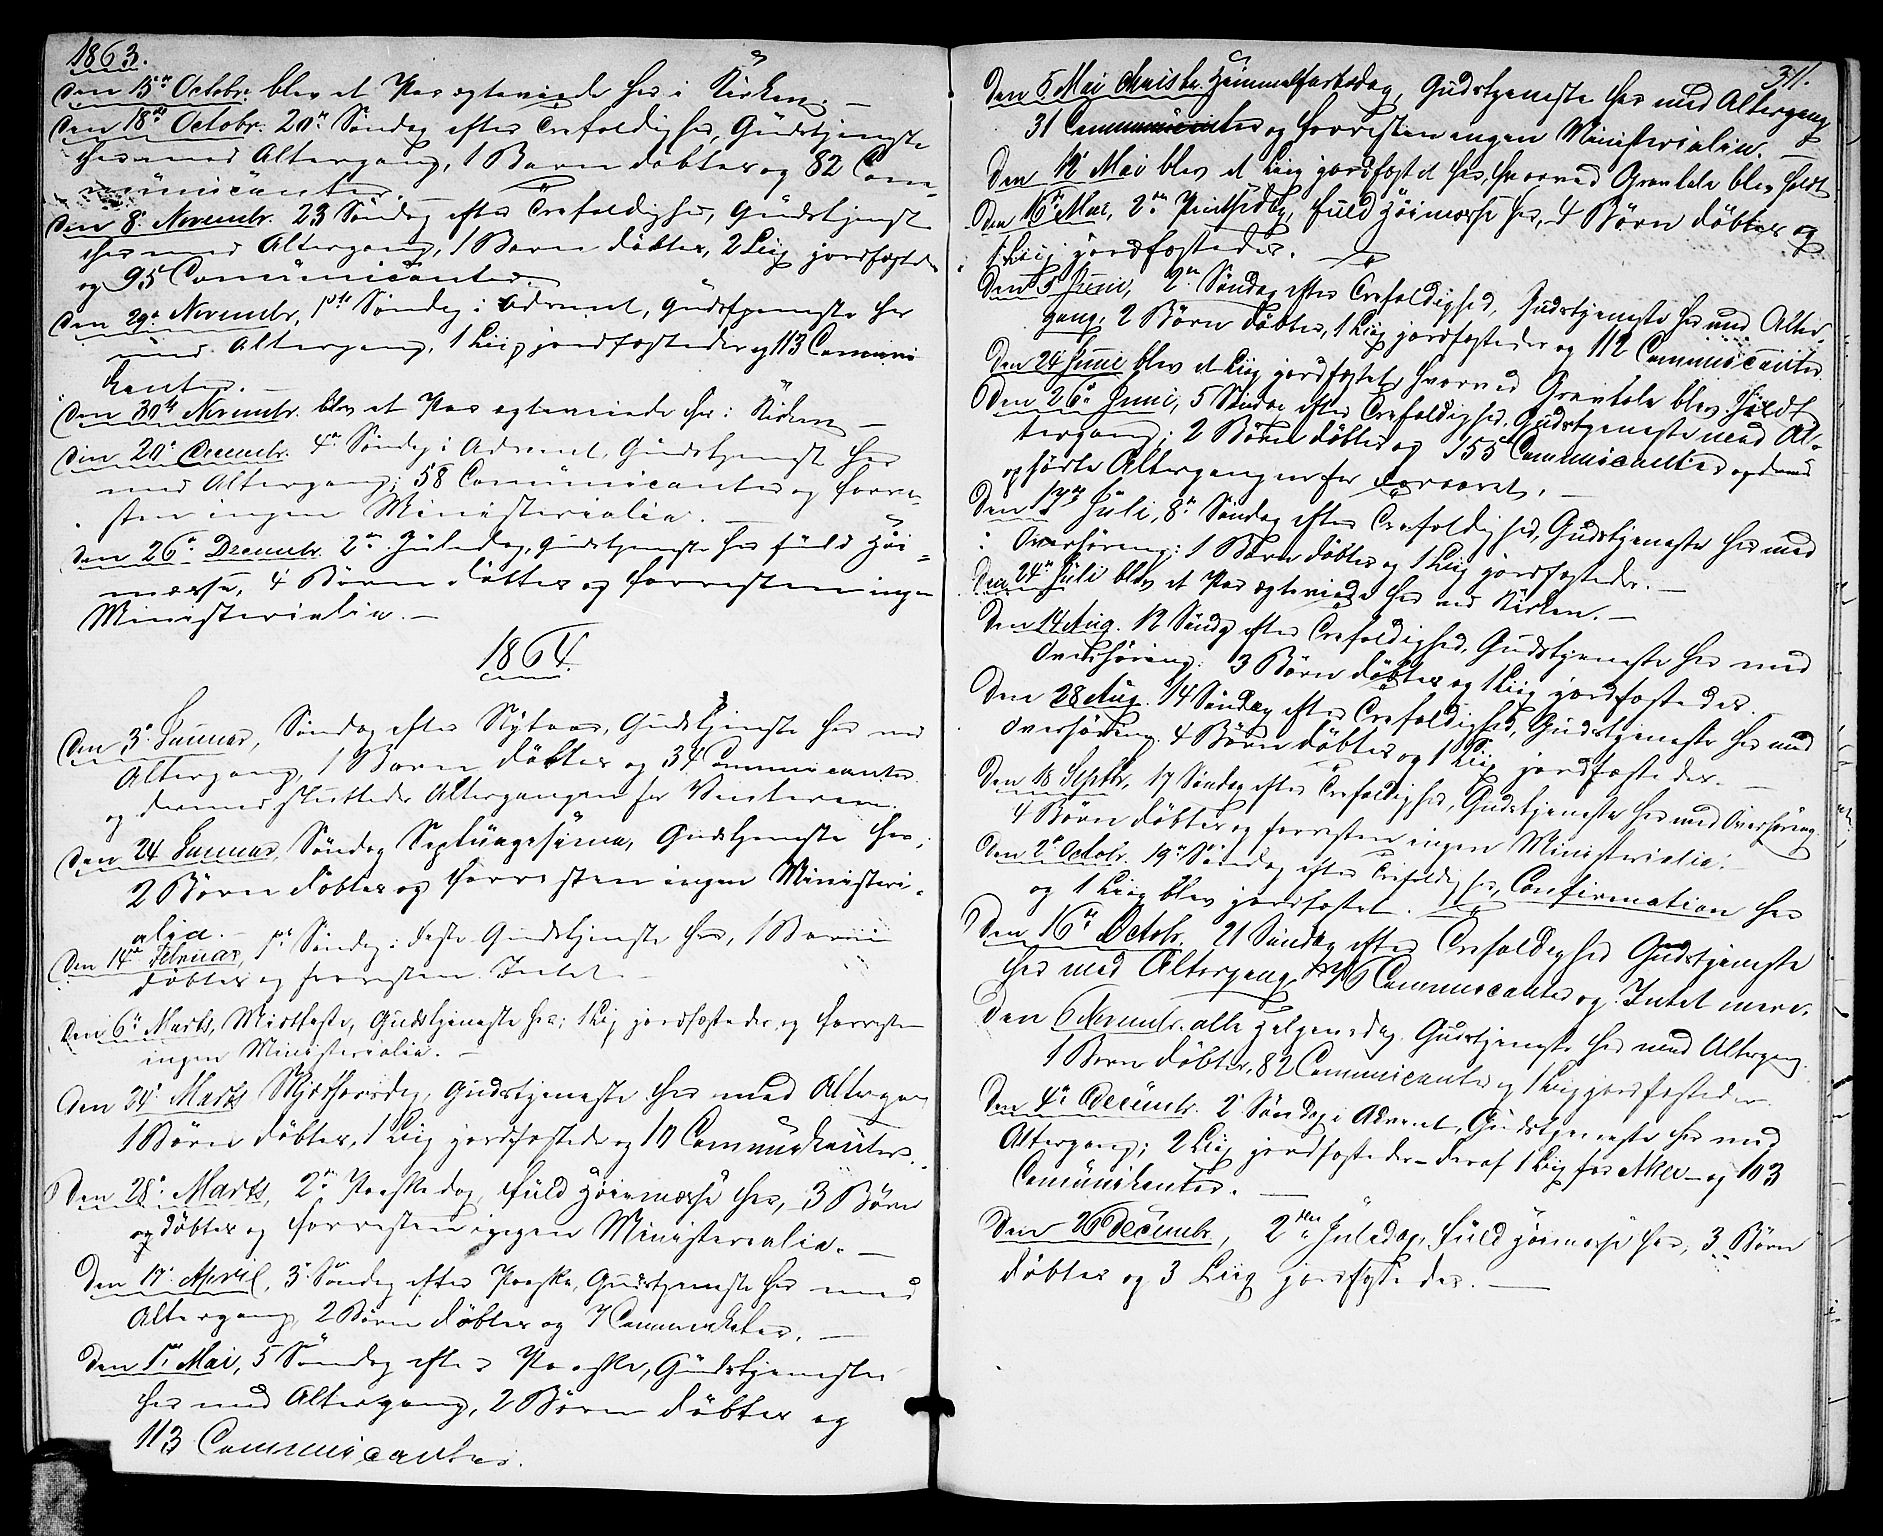 1863.
den 15de Octobr. blev et Par ægteviede her i Kirken. —
den 18de Octobr. 20de Søndag efter Trefoldighed, Gudstjeneste
her med Altergang, 1 Barn døbtes og 82 Com-
municanter. —
den 8de Novembr. 23 Søndag efter Trefoldighed, Gudstjenest
her med Altergang, 1 Barn døbtes, 2 Liig jordfæstedes
og 95 Comunicanter.
den 29de Novembr, 1ste Søndag i Advent, Gudstjeneste her
med Altergang, 1 Liig jordfæstedes og 113 Comuni
kanter. —
den 30te Novembr. blev et Par ægteviede her i Kirken —
den 20de Decembr. 4de Søndag i Advent, Gudstjenest her
med Altergang; 58 Comunicanter og forre-
sten ingen Ministerialia. —
den 26de Decembr. 2den Juledag, Gudstjeneste her fuld Høi-
messe, 4 Børn døbtes og forresten ingen
Ministerialia. —
1864.
den 3de Januar, Søndag efter Nytaar, Gudstjeneste her med
Altergang, 1 Barn døbtes og 34 Communicanter
og dermed sluttedes Altergangen for Vinteren.
den 24 Januar, Søndag Septuagesima, Gudstjeneste her,
2 Børn døbtes og forresten ingen Ministeri-
alia. —
den 14de Februar, 1ste Søndag i Faste Gudstjeneste her, 1 Barn
døbtes og forresten Intet. —
den 6te Marts, Midtfaste, Gudstjeneste her; 1 Liig jordfæstedes og forresten
ingen Ministerialia. —
den 24de Marts Skjærthorsdag, Gudstjeneste her med Altergang
1 Børn døbtes, 1 Liig jordfæstedes og 10 Communikanter.
den 28de Marts, 2den Paaskedag, fuld Høimesse her, 3 Børn
døbtes og forresten ingen Ministerialia. —
den 17de April, 3de Søndag efter Paaske, Gudstjeneste her med
Altergang, 2 Børn døbtes og 7 —
den 1ste Mai, 5 Søndag efter Paaske, Gudstjeneste
her med Altergang, 2 Børn døbtes og
113 Communicanter.
311.
den 5 Mai Christi Himmelfartsdag, Gudstjeneste her med Altergang
31 Communicanter og forresten ingen Ministerialia. —
den 12 Mai blev et Liig jordfæstet her, hvorved Gravtale blev holdt
den 16de Mai, 2den Pintsedag, fuld Høimesse her, 4 Børn døbtes og
1 Liig jordfæstedes. —
den 5 Juni, 2den Søndag efter Trefoldighed, Gudstjeneste her med Alter-
gang, 2 Børn døbtes, 1 Liig jordfæstedes og 112 Communicanter
den 24 Juni blev et Liig jordfæstet, hvorved Gravtale blev holdt
den 26de Juni, 5 Søndag efter Trefoldighed, Gudstjeneste med Al-
tergang; 2 Børn døbtes og 155 Communicanter og dermed
ophørte Altergangen for Foraaret. —
den 17de Juli, 8de Søndag efter Trefoldighed, Gudstjeneste her med
Overhøring; 1 Barn døbtes og 1 Liig jordfæstedes. —
den 24de Juli blev et Par ægteviede her ved Kirken. —
den 14 Aug. 12 Søndag efter Trefoldighed, Gudstjeneste her med
Overhøring. 3 Børn døbtes og 1 Liig jordfæstedes. —
den 28 Aug. 14 Søndag efter Trefoldighed, Gudstjeneste her med
Overhøring. 4 Børn døbtes og 1 Liig jordfæstedes. —
den 18 Septbr, 17 Søndag efter Trefoldighed, Gudstjeneste her med Overhøring
4 Børn døbtes og forresten ingen Ministerialia. —
den 2de Octobr. 19de Søndag efter Trefoldighed, Confirmation her
og 1 Liig blev jordfæstet. —
den 16de Octobr. 21 Søndag efter Trefoldighed Gudstjeneste
her med Altergang, Communicanter og Intet mere.
den 6 Novembr. alle Helgensdag. Gudstjeneste her med Altergang.
1 Barn døbtes, 82 Communicanter og 1 Liig jordfæstedes.
den 4de Decembr. 2 Søndag i Advent, Gudstjeneste her med
Altergang; 2 Liig jordfæstedes – deraf 1 Liig for Aker – og 103
Comunikanter. —
den 26 Decembr, 2den Juledag, fuld Høimesse her, 3 Børn
døbtes og 3 Liig jordfæstedes. —